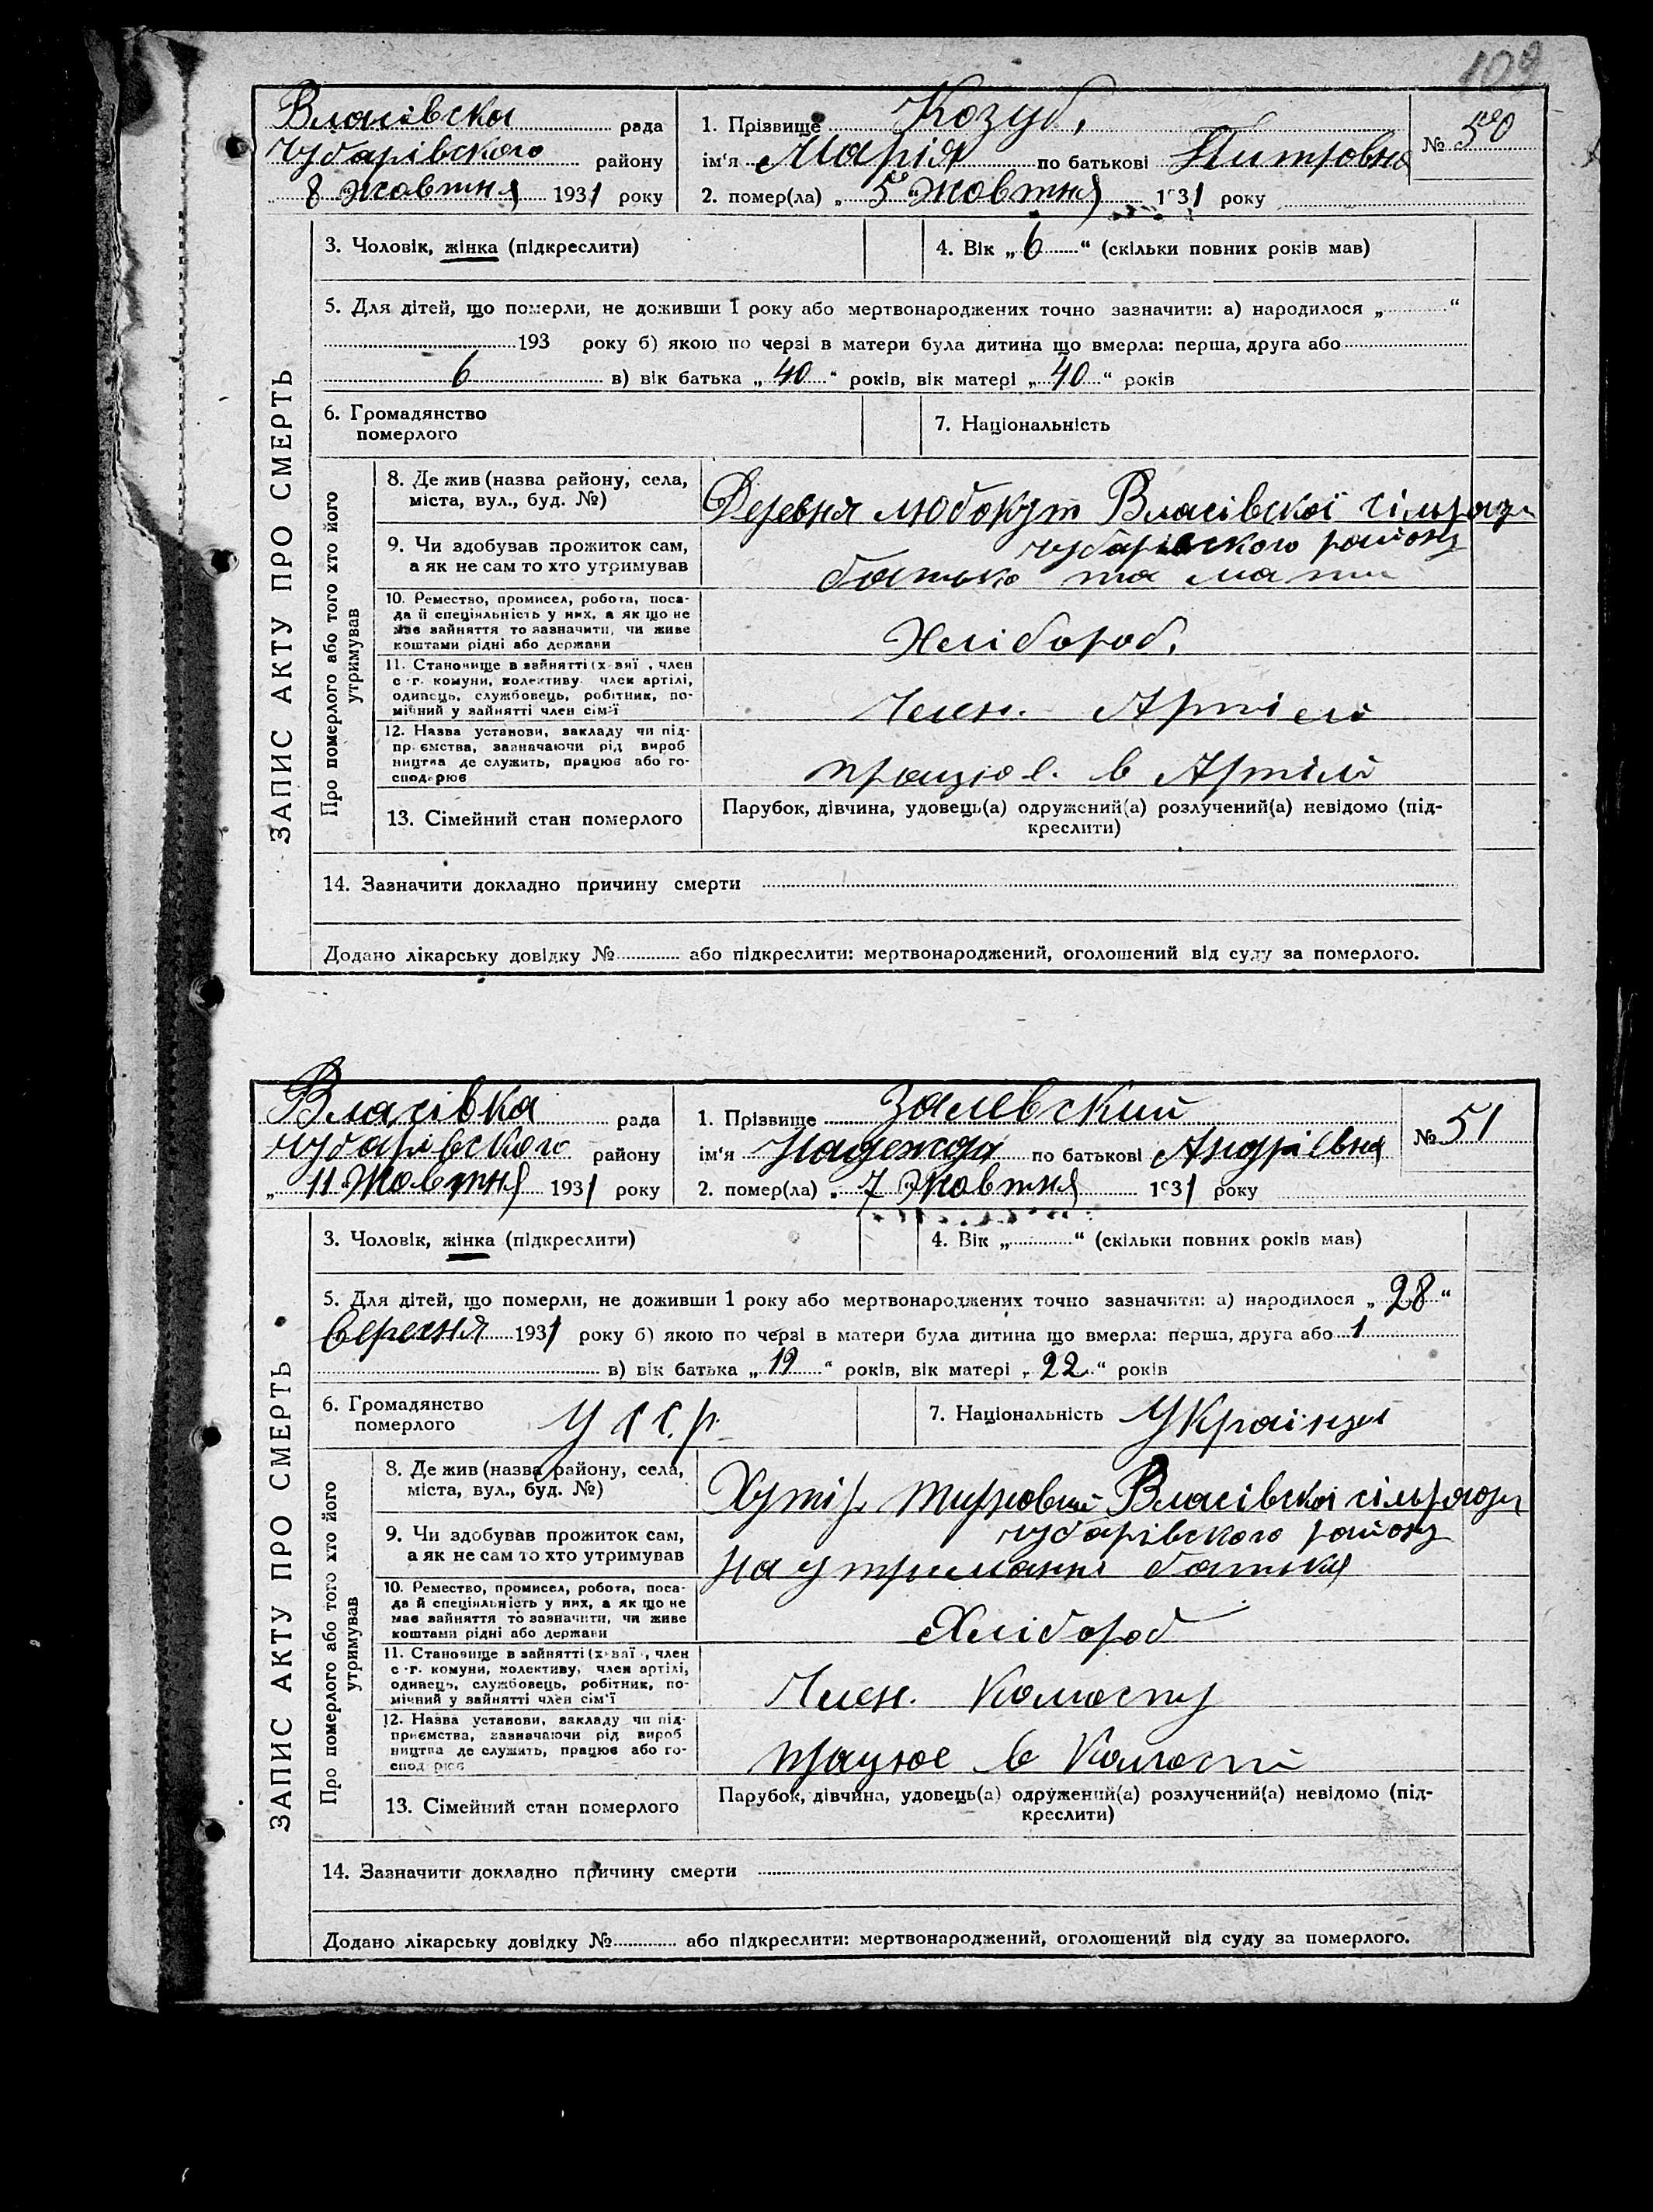 109
Власівска рада
Чубарівского району
„ 8 Жовтня 1931 року
1. Прізвище Козуб,
ім‘я Марія по батькові Питровна
№ 50
2. помер(ла) „ 5 " Жовтня 1931 року
ЗАПИС АКТУ ПРО СМЕРТЬ
3. Чоловік, жінка (підкреслити)
4. Вік „ 6 “ (скільки повних років мав)
5. Для дітей, що померли, не доживши 1 року або мертвонароджених точно зазначити: а) народилося „ “
193 року б) якою по черзі в матери була дитина що вмерла: перша, друга або
6 в) вік батька „ 40 “ років, вік матері „ 40 “ років
6. Громадянство
померлого
7. Національність
Про померлого або того хто його
утримував
8. Де жив (назва району, села,
міста, вул., буд. №)
Деревня Любокут Власівскої сільради
Чубарівского району
9. Чи здобував прожиток сам,
а як не сам то хто утримував
батько та мати
10. Ремество, промисел, робота, поса-
да й спеціяльність у них, а як що не
має зайняття то зазначити, чи живе
коштами рідні або держави
Хлібороб.
11. Становище в зайнятті (х-вяї , член
с.-г. комуни, колективу. член артілі,
одинець, службовець, робітник, по-
мічний у зайнятті член сім'ї
Член. Артіелі
12. Назва установи, закладу чи під-
пр.ємства, зазначаючи рід вироб
ництва де служить, працює або го-
сподарює
працює. в Артілі
13. Сімейний стан померлого
Парубок, дівчина, удовець(а) одружений(а) розлучений(а) невідомо (під-
креслити)
14. Зазначити докладно причину смерти
Додано лікарську довідку № або підкреслити: мертвонароджений, оголошений від суду за померлого.
Власівка рада
Чубарівского району
„ 11 Жовтня 1931 року
1. Прізвище Залевский
ім‘я Надежда по батькові Андріевна
№ 51
2. помер(ла) „ 7 Жовтня 1931 року
ЗАПИС АКТУ ПРО СМЕРТЬ
3. Чоловік, жінка (підкреслити)
4. Вік „ “ (скільки повних років мав)
5. Для дітей, що померли, не доживши 1 року або мертвонароджених точно зазначити: а) народилося „ 28 “
Вересня 1931 року б) якою по черзі в матери була дитина що вмерла: перша, друга або 1
в) вік батька „ 19 “ років, вік матері „ 22 “ років
6. Громадянство
померлого
УССР
7. Національність Українця
Про померлого або того хто його
утримував
8. Де жив (назва району, села,
міста, вул., буд. №)
Хутір Власівскої сільради
Чубарівского району
9. Чи здобував прожиток сам,
а як не сам то хто утримував
На утриманні батька
10. Ремество, промисел, робота, поса-
да й спеціяльність у них, а як що не
має зайняття то зазначити, чи живе
коштами рідні або держави
Хлібороб
11. Становище в зайнятті (х-ваї , член
с.-г. комуни, колективу, член артілі,
одинець, службовець, робітник, по-
мічний у зайнятті член сім'ї
Член. Колгоспу
12. Назва установи, закладу чи під-
приємства, зазначаючи рід вироб
ництва де служить, працює або го-
сподарює
працює в Колгоспі
13. Сімейний стан померлого
Парубок, дівчина, удовець(а) одружений(а) розлучений(а) невідомо (під-
креслити)
14. Зазначити докладно причину смерти
Додано лікарську довідку № або підкреслити: мертвонароджений, оголошений від суду за померлого.